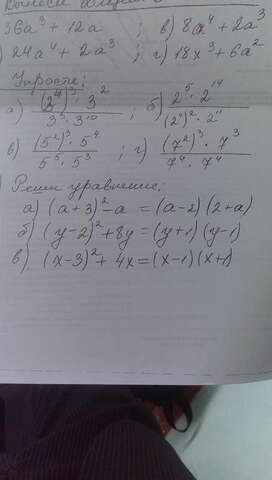 36a³ + 12a ; в) 8a⁴ + 2a³
24a⁴ + 2a³ ; г) 18x³ + 6a²
Упрости:
а) (2⁴)³ · 3² / 3³ · 3¹⁰ ; б) 2⁵ · 2¹⁴ / (2⁴)² · 2¹¹
в) (5²)³ · 5⁴ / 5⁵ · 5³ ; г) (7²)³ · 7³ / 7⁴ · 7⁴
Реши уравнение:
а) (a+3)² - a = (a-2)(2+a)
б) (y-2)² + 8y = (y+1)(y-1)
в) (x-3)² + 4x = (x-1)(x+1)